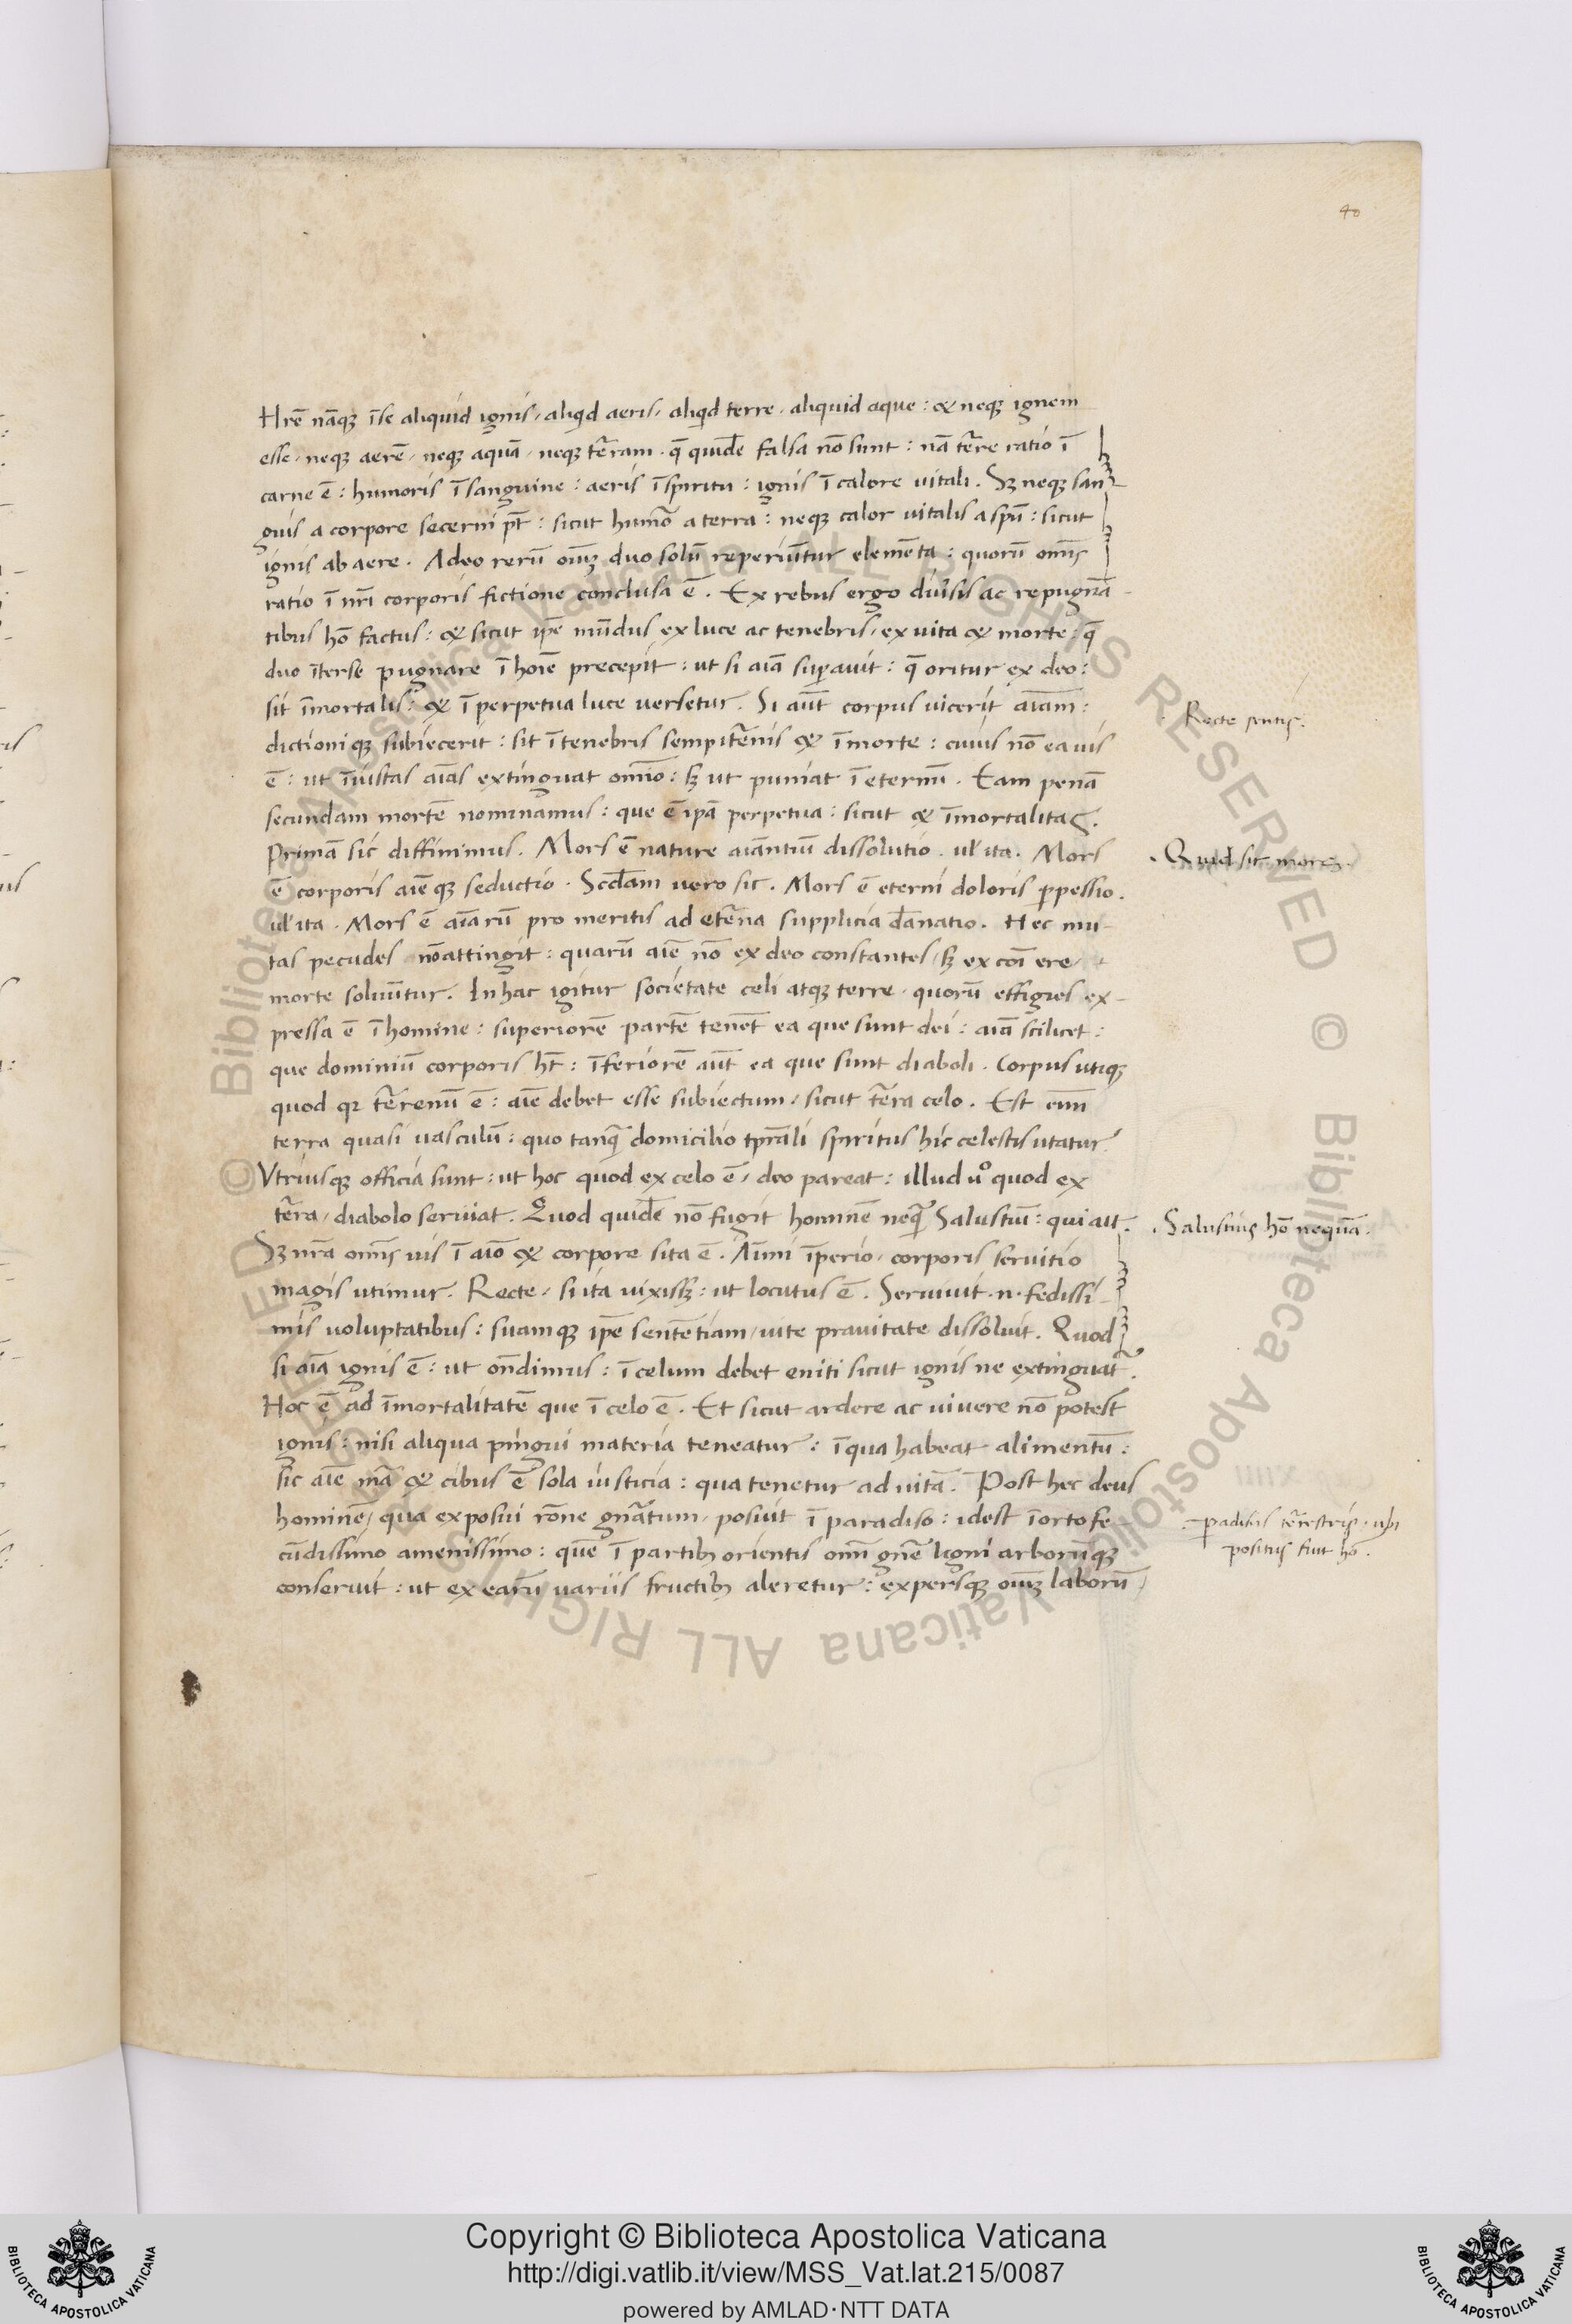 40
Hrē nāqꝫ īse aliquid ignis, aliqd aeris, aliqd terre, aliquid aque: & neqꝫ ignem
esse, neqꝫ aerē, neqꝫ aquā, neqꝫ tr̄ram. q̄ quidē falsa nō sunt: nā tr̄re ratio ī
carne ē: humoris ī sanguine: aeris ī spiritu: ignis ī calore vitali. Sꝫ neqꝫ san
guis a corpore secerni pt̄: sicut humō a terra: neqꝫ calor vitalis a spū: sicut
ignis ab aere. Adeo rerū oīuꝫ duo solū reperiūtur elemēta: quorū omīs
ratio ī nr̄i corporis fictione conclusa ē. Ex rebus ergo diūsis ac repugnā-
tibus hō factus: & sicut ip̄e mūdus ex luce ac tenebris, ex vita & morte: q̄
duo īterse pugnare ī hoīe precepit: ut si aīa supavit: q̄ oritur ex deo:
sit īmortalis: & ī perpetua luce versetur. Si aūt corpus vicerit aīam:
dictioniqꝫ subiecerit: sit ī tenebris sempitr̄nis & ī morte: cuius nō ea vis
ē: ut īiustas aīas extinguat omīo: sꝫ ut puniat ī eternū. Eam penā
secundam mortē nominamus: que ē ip̄a perpetua: sicut & īmortalitas.
Primā sic diffinimus. Mors ē nature aīantiū dissolutio. ul̓ ita. Mors
ē corporis aīeqꝫ seductio. Scd̄am vero sic. Mors ē eterni doloris ꝑpessio.
ul̓ ita. Mors ē aīarū pro meritis ad etr̄na supplicia dānatio. Hec mu-
tas pecudes nō attingit: quarū aīe nō ex deo constantes, sꝫ ex coī ere,
morte soluūtur. In hac igitur societate celi atqꝫ terre, quorū effigies ex-
pressa ē ī homine: superiorē partē tenēt ea que sunt dei: aīa scilicet:
que dominiū corporis ht̄: īferiorē aūt ea que sunt diaboli. Corpus utiqꝫ
quod qꝛ tr̄renū ē: aīe debet esse subiectum, sicut tr̄ra celo. Est enī
terra quasi vasculū: quo tanq̄ domicilio tp̄rali spiritus hic celestis utatur.
Vtriusqꝫ officia sunt: ut hoc quod ex celo ē, deo pareat: illud uº quod ex
tr̄ra, diabolo serviat. Quod quidē nō fugit hominē neq̄ Salustiū: qui ait.
Sꝫ nr̄a omīs vis ī aīo & corpore sita ē. Aīmi īperio, corporis servitio
magis utimur. Recte, si ita vixissꝫ: ut locutus ē. Servivit .n. fedissi-
mis voluptatibus: suamqꝫ ip̄e sentētiam, vite pravitate dissolvit. Quod
si aīa ignis ē: ut on̄dimus: ī celum debet eniti sicut ignis ne extinguat̄.
Hoc ē ad īmortalitatē que ī celo ē. Et sicut ardere ac vivere nō potest
ignis: nisi aliqua pingui materia teneatur: ī qua habeat alimentū:
sic aīe mā & cibus ē sola iusticia: qua tenetur ad vitā. Post hec deus
hominē, qua exposui rōne gnātum, posuit ī paradiso: idest ī orto fe
cūdissimo amenissimo: quē ī partibꝫ orientis omī gnē ligni arborūqꝫ
conseruit: ut ex earū variis fructibꝫ aleretur: expersqꝫ oīuꝫ laborū,
Recte
. Quid sit mors.
. Salustius hō nequā.
. padisus tr̄restris. ubi
positus fuit hō.
Copyright © Biblioteca Apostolica Vaticana
http://digi.vatlib.it/view/MSS_Vat.lat.215/0087
powered by AMLAD·NTT DATA
BIBLIOTECA APOSTOLICA VATICANA
BIBLIOTECA APOSTOLICA VATICANA
© Biblioteca Apostolica Vaticana ALL RIGHTS RESERVED
© Biblioteca Apostolica Vaticana ALL RIGHTS RESERVED